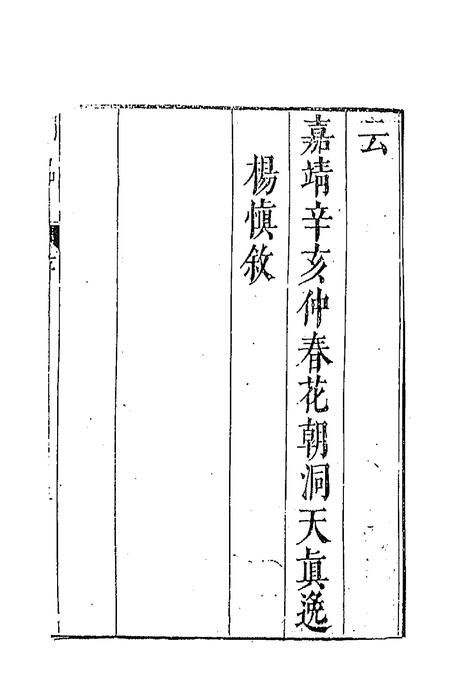 云
嘉靖辛亥仲春花朝洞天眞逸
楊愼敘